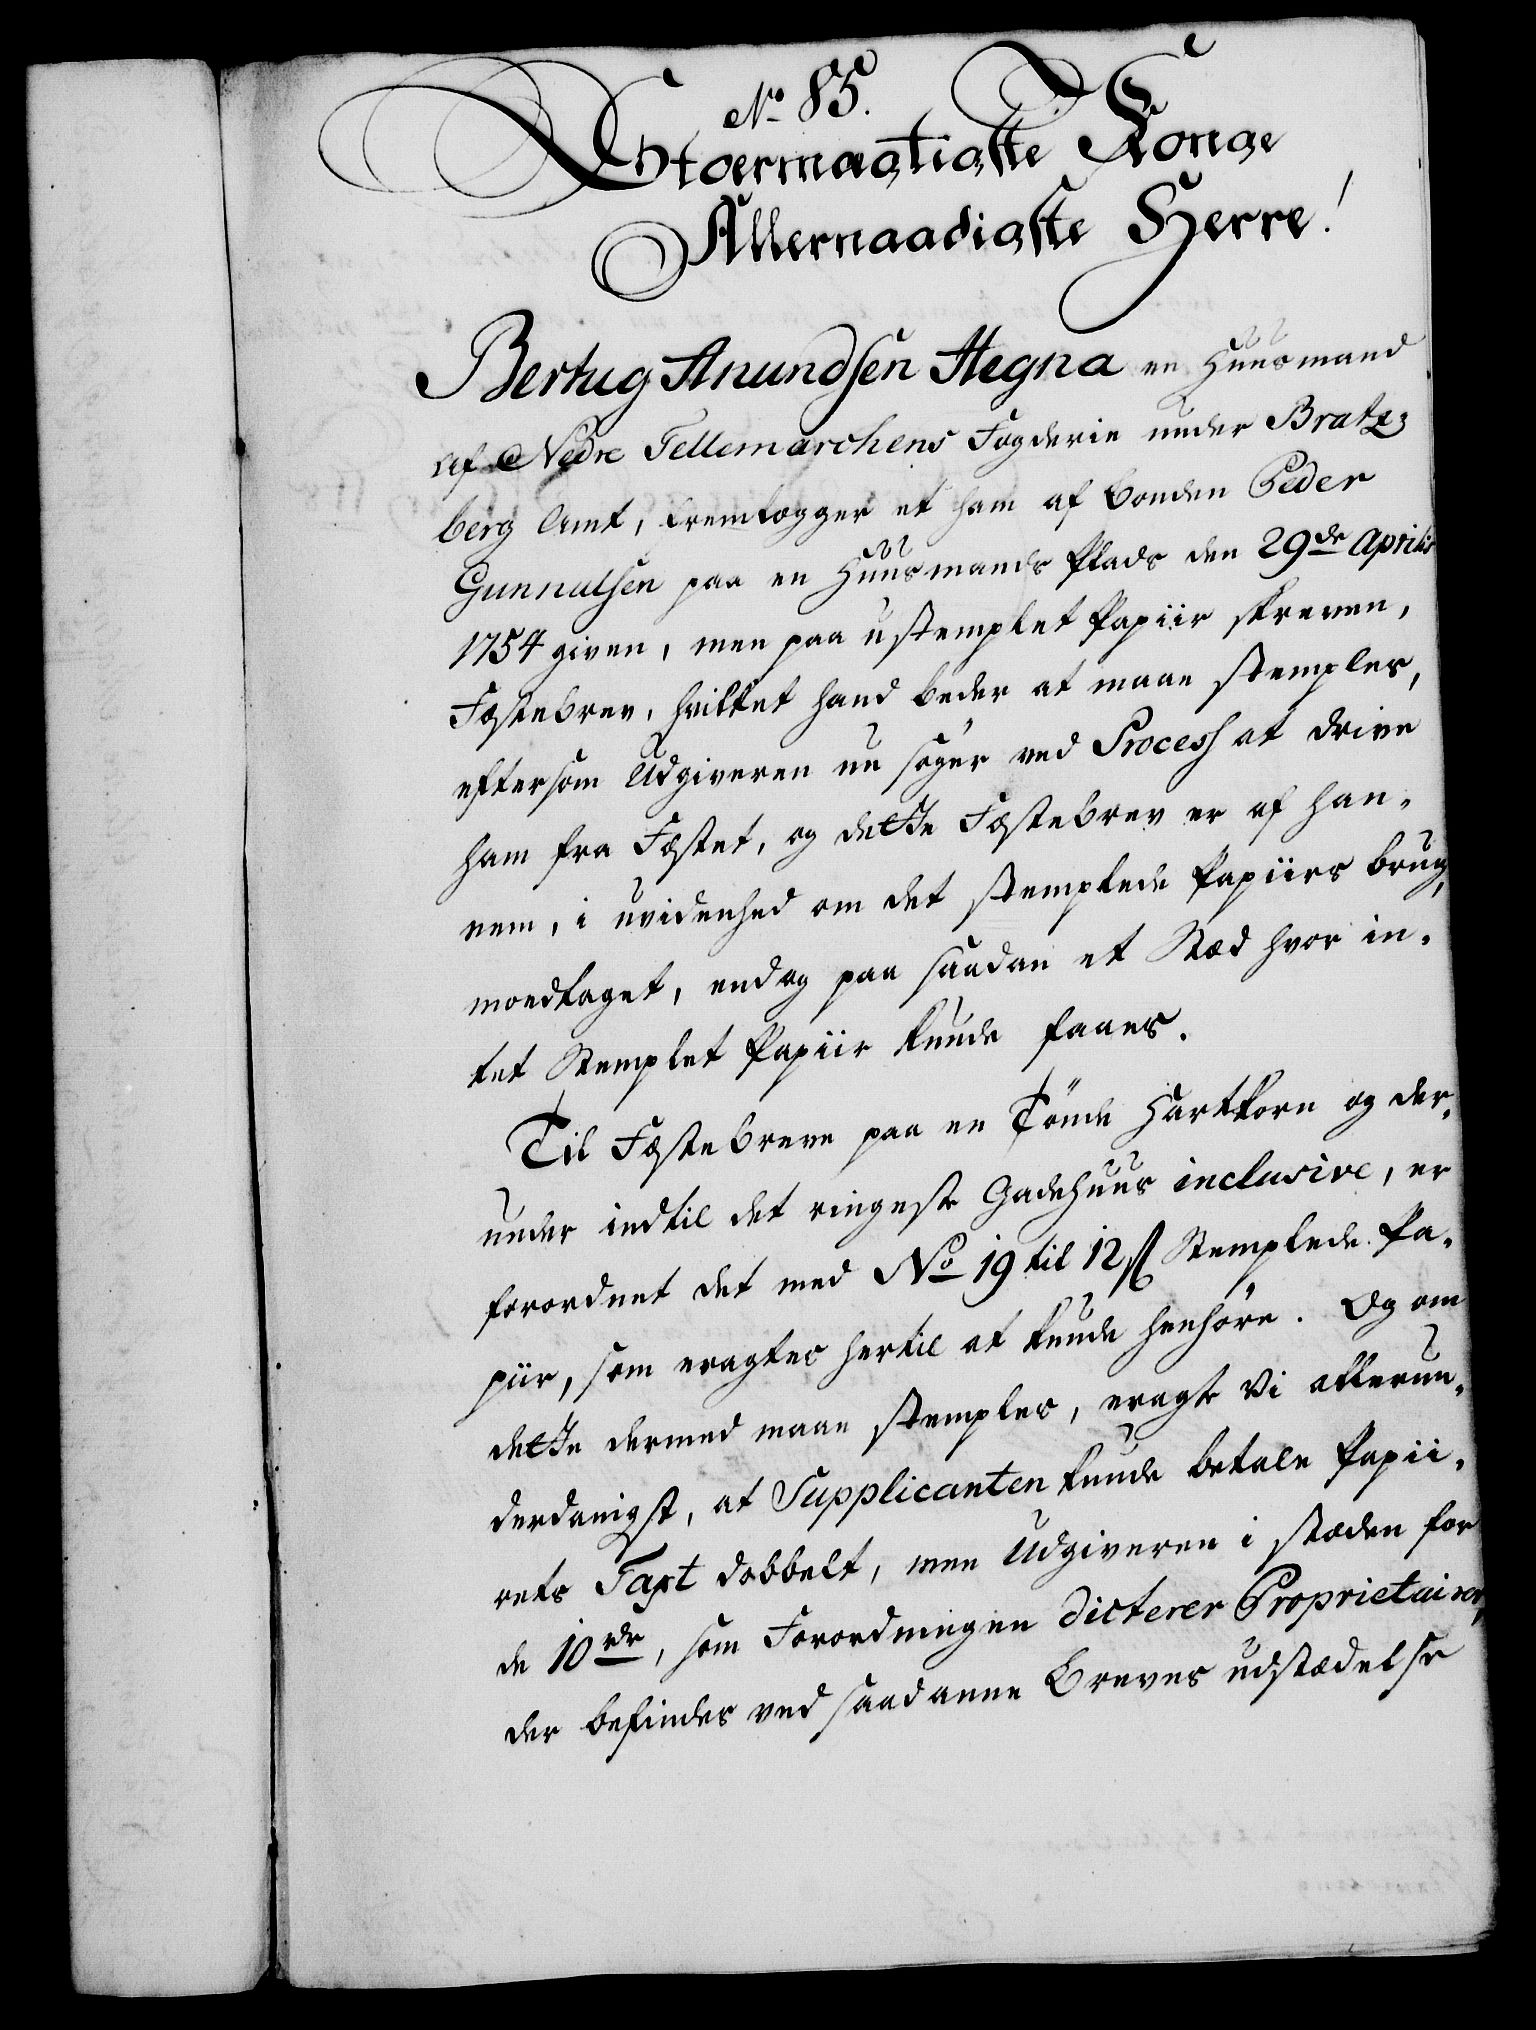 No 85.
Stoermægtigste Konge
Allernaadigste Herre!
Bertug Anundsen Hegna en Huusmand
af Nedre Tellemarchens Fogderie under Bratz-
berg Amt, fremlegger et ham af bonden Peder
Gunnulsen paa en Huusmands Plads den 29de Aprilis
1754 given, men paa ustemplet Papiir skreven,
Fæstebrev, hvilket hand beder at maae stemples,
eftersom Udgiveren nu søger ved Process at drive
ham fra Fæstet, og dette Fæstebrev er af han-
nem, i uvidenhed om det stemplede Papiirs brug,
modtaget, end og paa saadan et Sted hvor in-
tet Stemplet Papiir kunde faaes.
Til Fæstebreve paa en Tönde Hartkorn og der-
under indtil det ringeste Gadehuus inclusive, er
forordnet det med No 19 til 12 ß Stemplede Pa-
piir, som eragtes hertil at kunde henhöre. Og om
dette dermed maae stemples, eragte Vi allerun-
derdanigst, at Supplicanten kunde betale Papii-
rets Taxt dobbelt, men Udgiveren i stæden for
de 10 rdr, som Forordningen dicterer Proprietairer,
der befindes ved saadanne Breves udstædelse